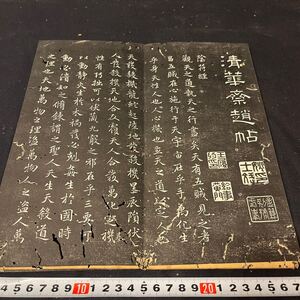 清華齋趙帖
陰符經
觀天之道執天之行盡矣天有五賊見之者
昌五賊在心施行于天宇宙在乎手萬化生
乎身天性人也人心機也立天之道以定人也
天發殺機龍蛇起陸發殺機星辰隕伏
人發殺機天地反覆天人合發萬變定基
性有巧拙可以伏藏九竅之邪在乎三要可
以動靜火生於木禍發必剋姦生於國時
動必潰知之修鍊謂之聖人天生天殺道
之理也天地萬物之盜萬物人之盜人萬
10
20